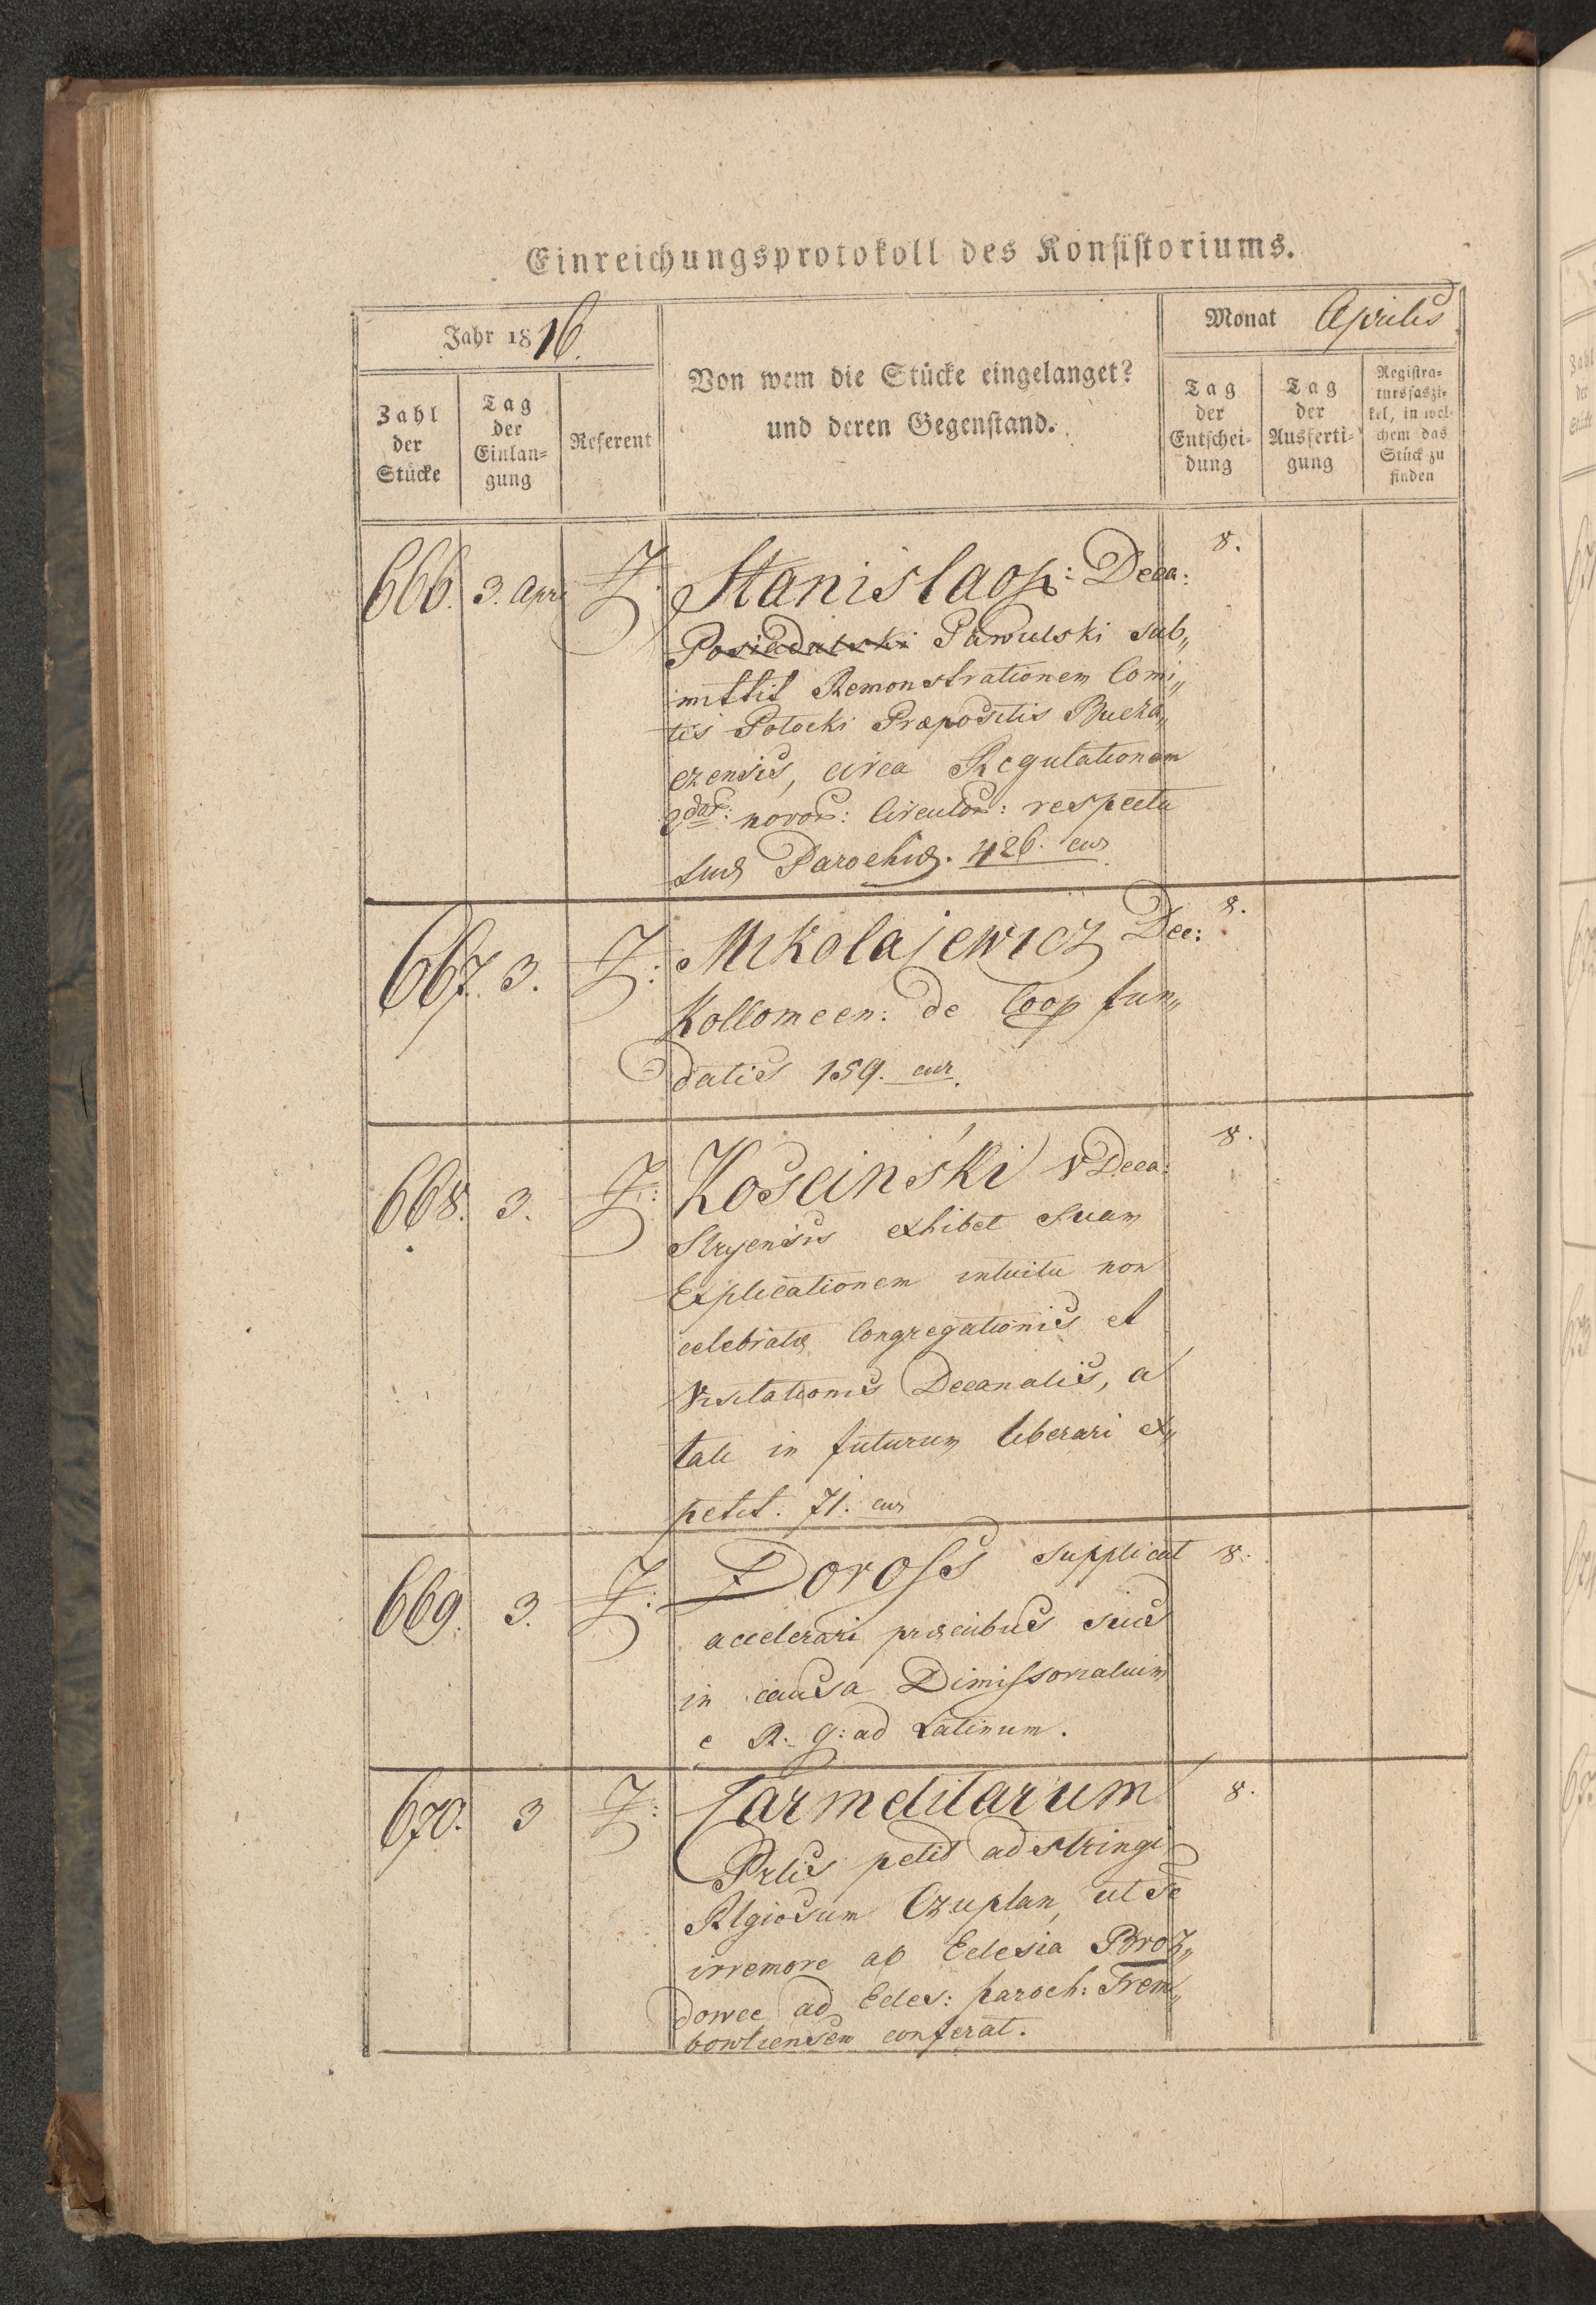 Einreichungsprotokoll des Konsistoriums.
Jahr 1816.
Monat Aprilis
Zahl der Stücke
Tag der Einlan=gung
Referent
Von wem die Stücke eingelanget?
und deren Gegenstand.
Tag der Entschei=dung
Tag der Ausferti=gung
Registra=tursfaszi=kel, in wel=chem das Stück zu finden
666. 3. Apr. Stanislaop: Deca: 8.
Posiadalski Pawulski sub„
mittit Remonstrationem Comi„
tis Potocki Præpositis Bucza„
czensis, circa Regulationem
novor: Circulor: respectu
suæ Parochiæ. 426. cur
667. 3. Mikolajewicz Dec: 8.
Kollomeen: de Coop fun„
datis 159. cur.
668. 3. Kosciński VDeca: 8.
Stryensis exhibet suam
Explicationem intuitu non
celebratæ Congregationis et
Visitationis Decanalis, a
tali in futurum liberari ex„
petit. 71. cur
669. 3. Doross supplicat 8.
accelerari præcibus suis
in causa Dimissorialium
e R. g: ad Latinum.
670. 3 Carmelitarum 8.
Prlis petit adstringi
Rlgiosum Czuplan, ut se
irremore ab Eclesia Broz„
dowce ad Ecles: paroch: Trem„
bowliensem conferat.